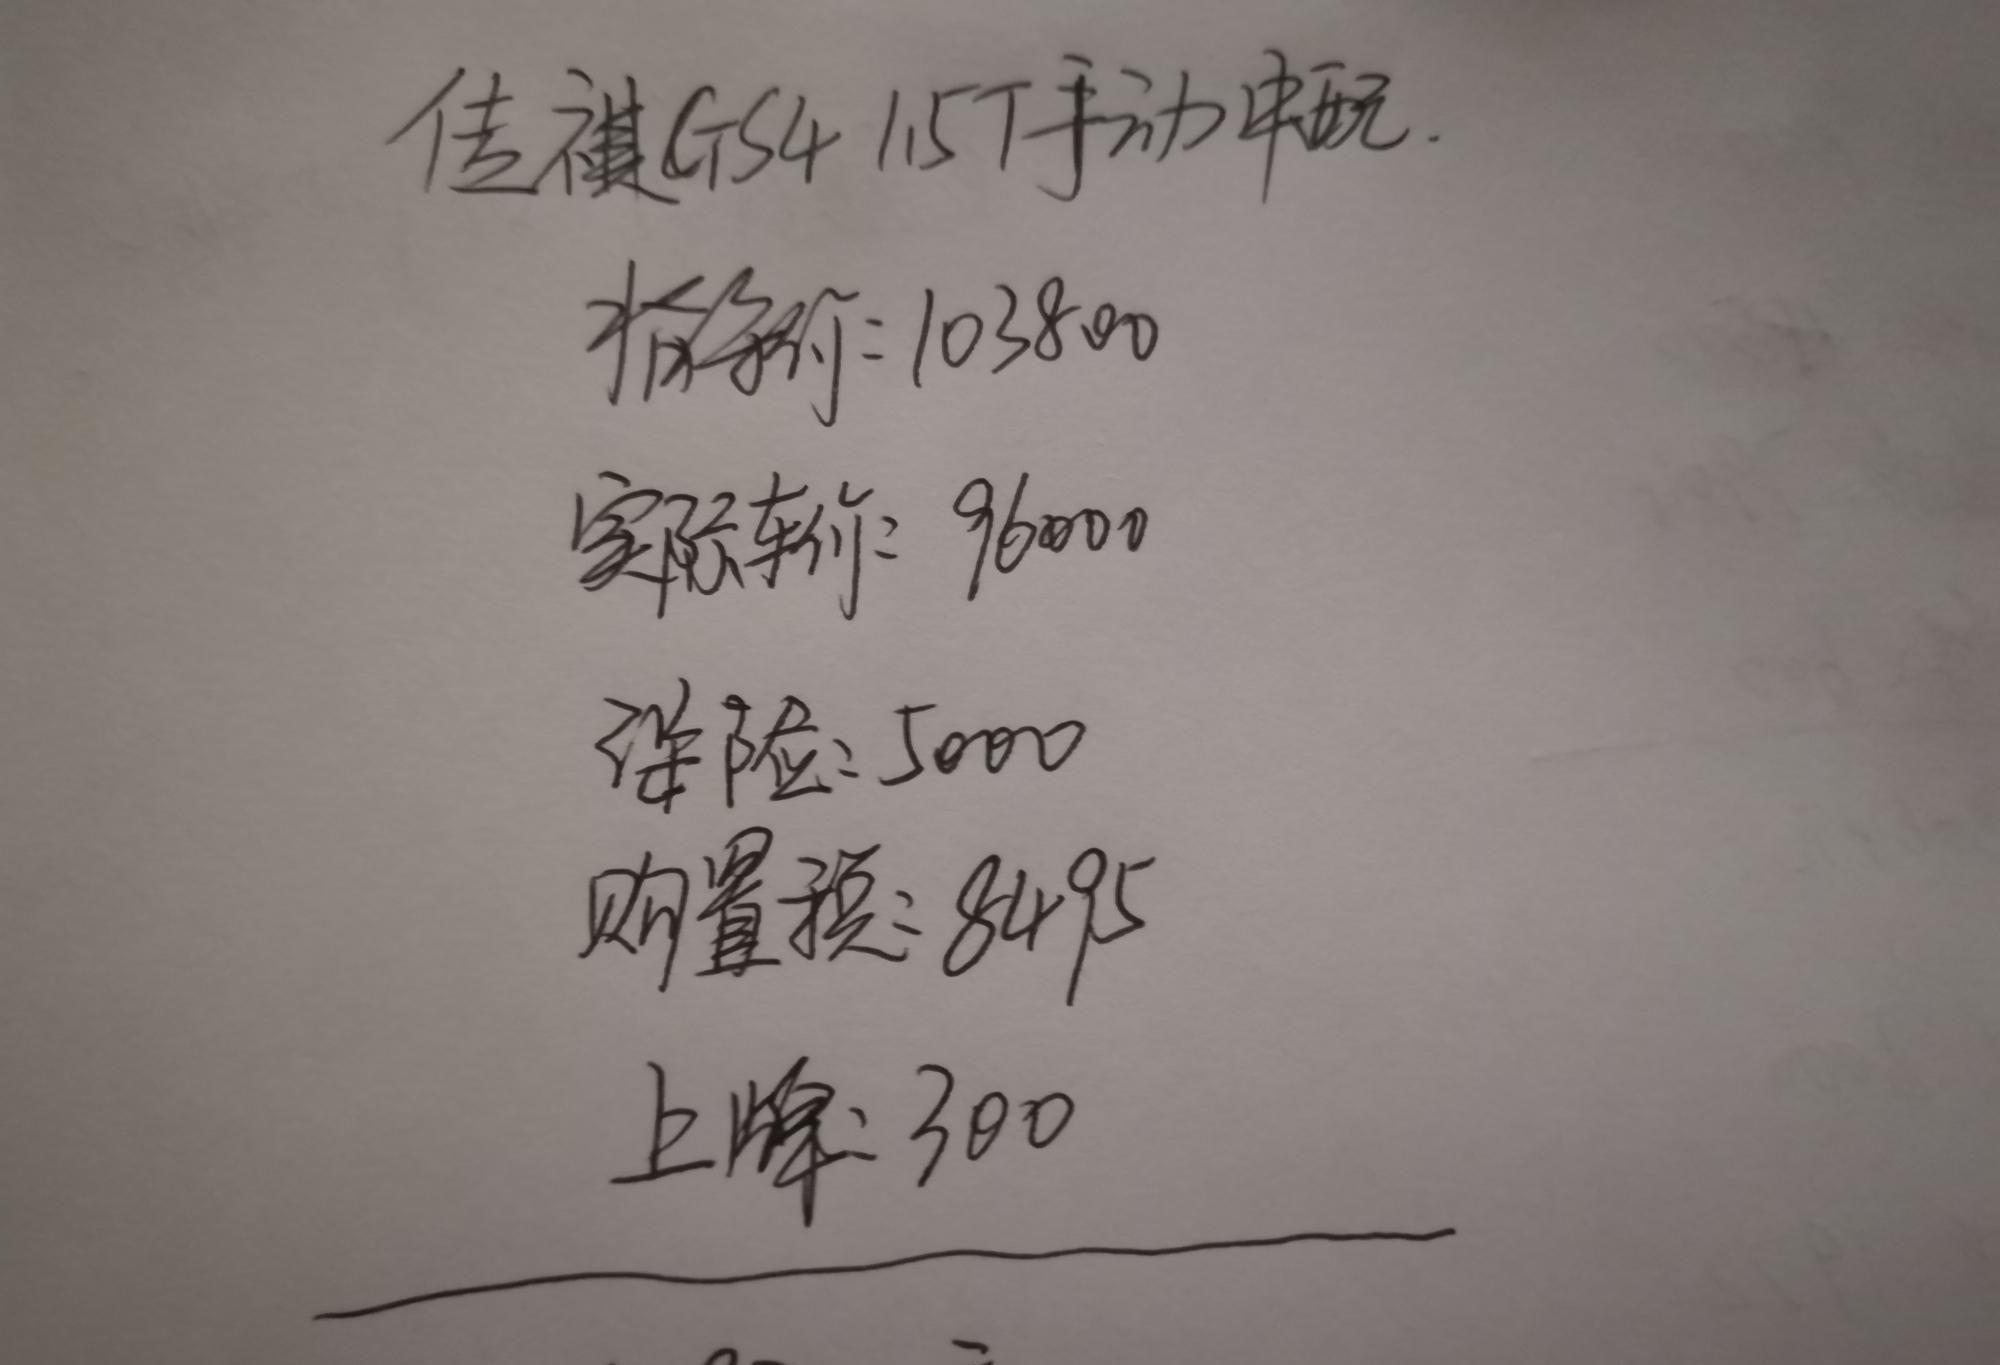 传祺GS4 1.5T手动中配.
指导价:103800
实际车价:96000
保险:5000
购置税:8495
上牌:300